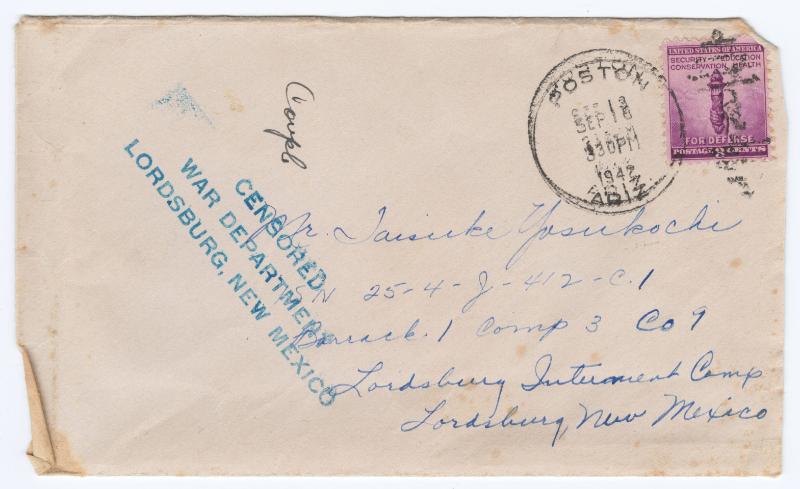 UNITED STATES OF AMERICA
SECURITY · EDUCATION
CONSERVATION · HEALTH
FOR DEFENSE
POSTAGE 3 CENTS
POSTON
SEP 1
30PM
1942
ARIZ.
CENSORED
WAR DEPARTMENT
LORDSBURG, NEW MEXICO
Mr. Taisuke Yosukochi
SN 25-4-J-412-C.1
Barrack. 1 Comp 3 Co 9
Lordsburg Interment Camp
Lordsburg, New Mexico